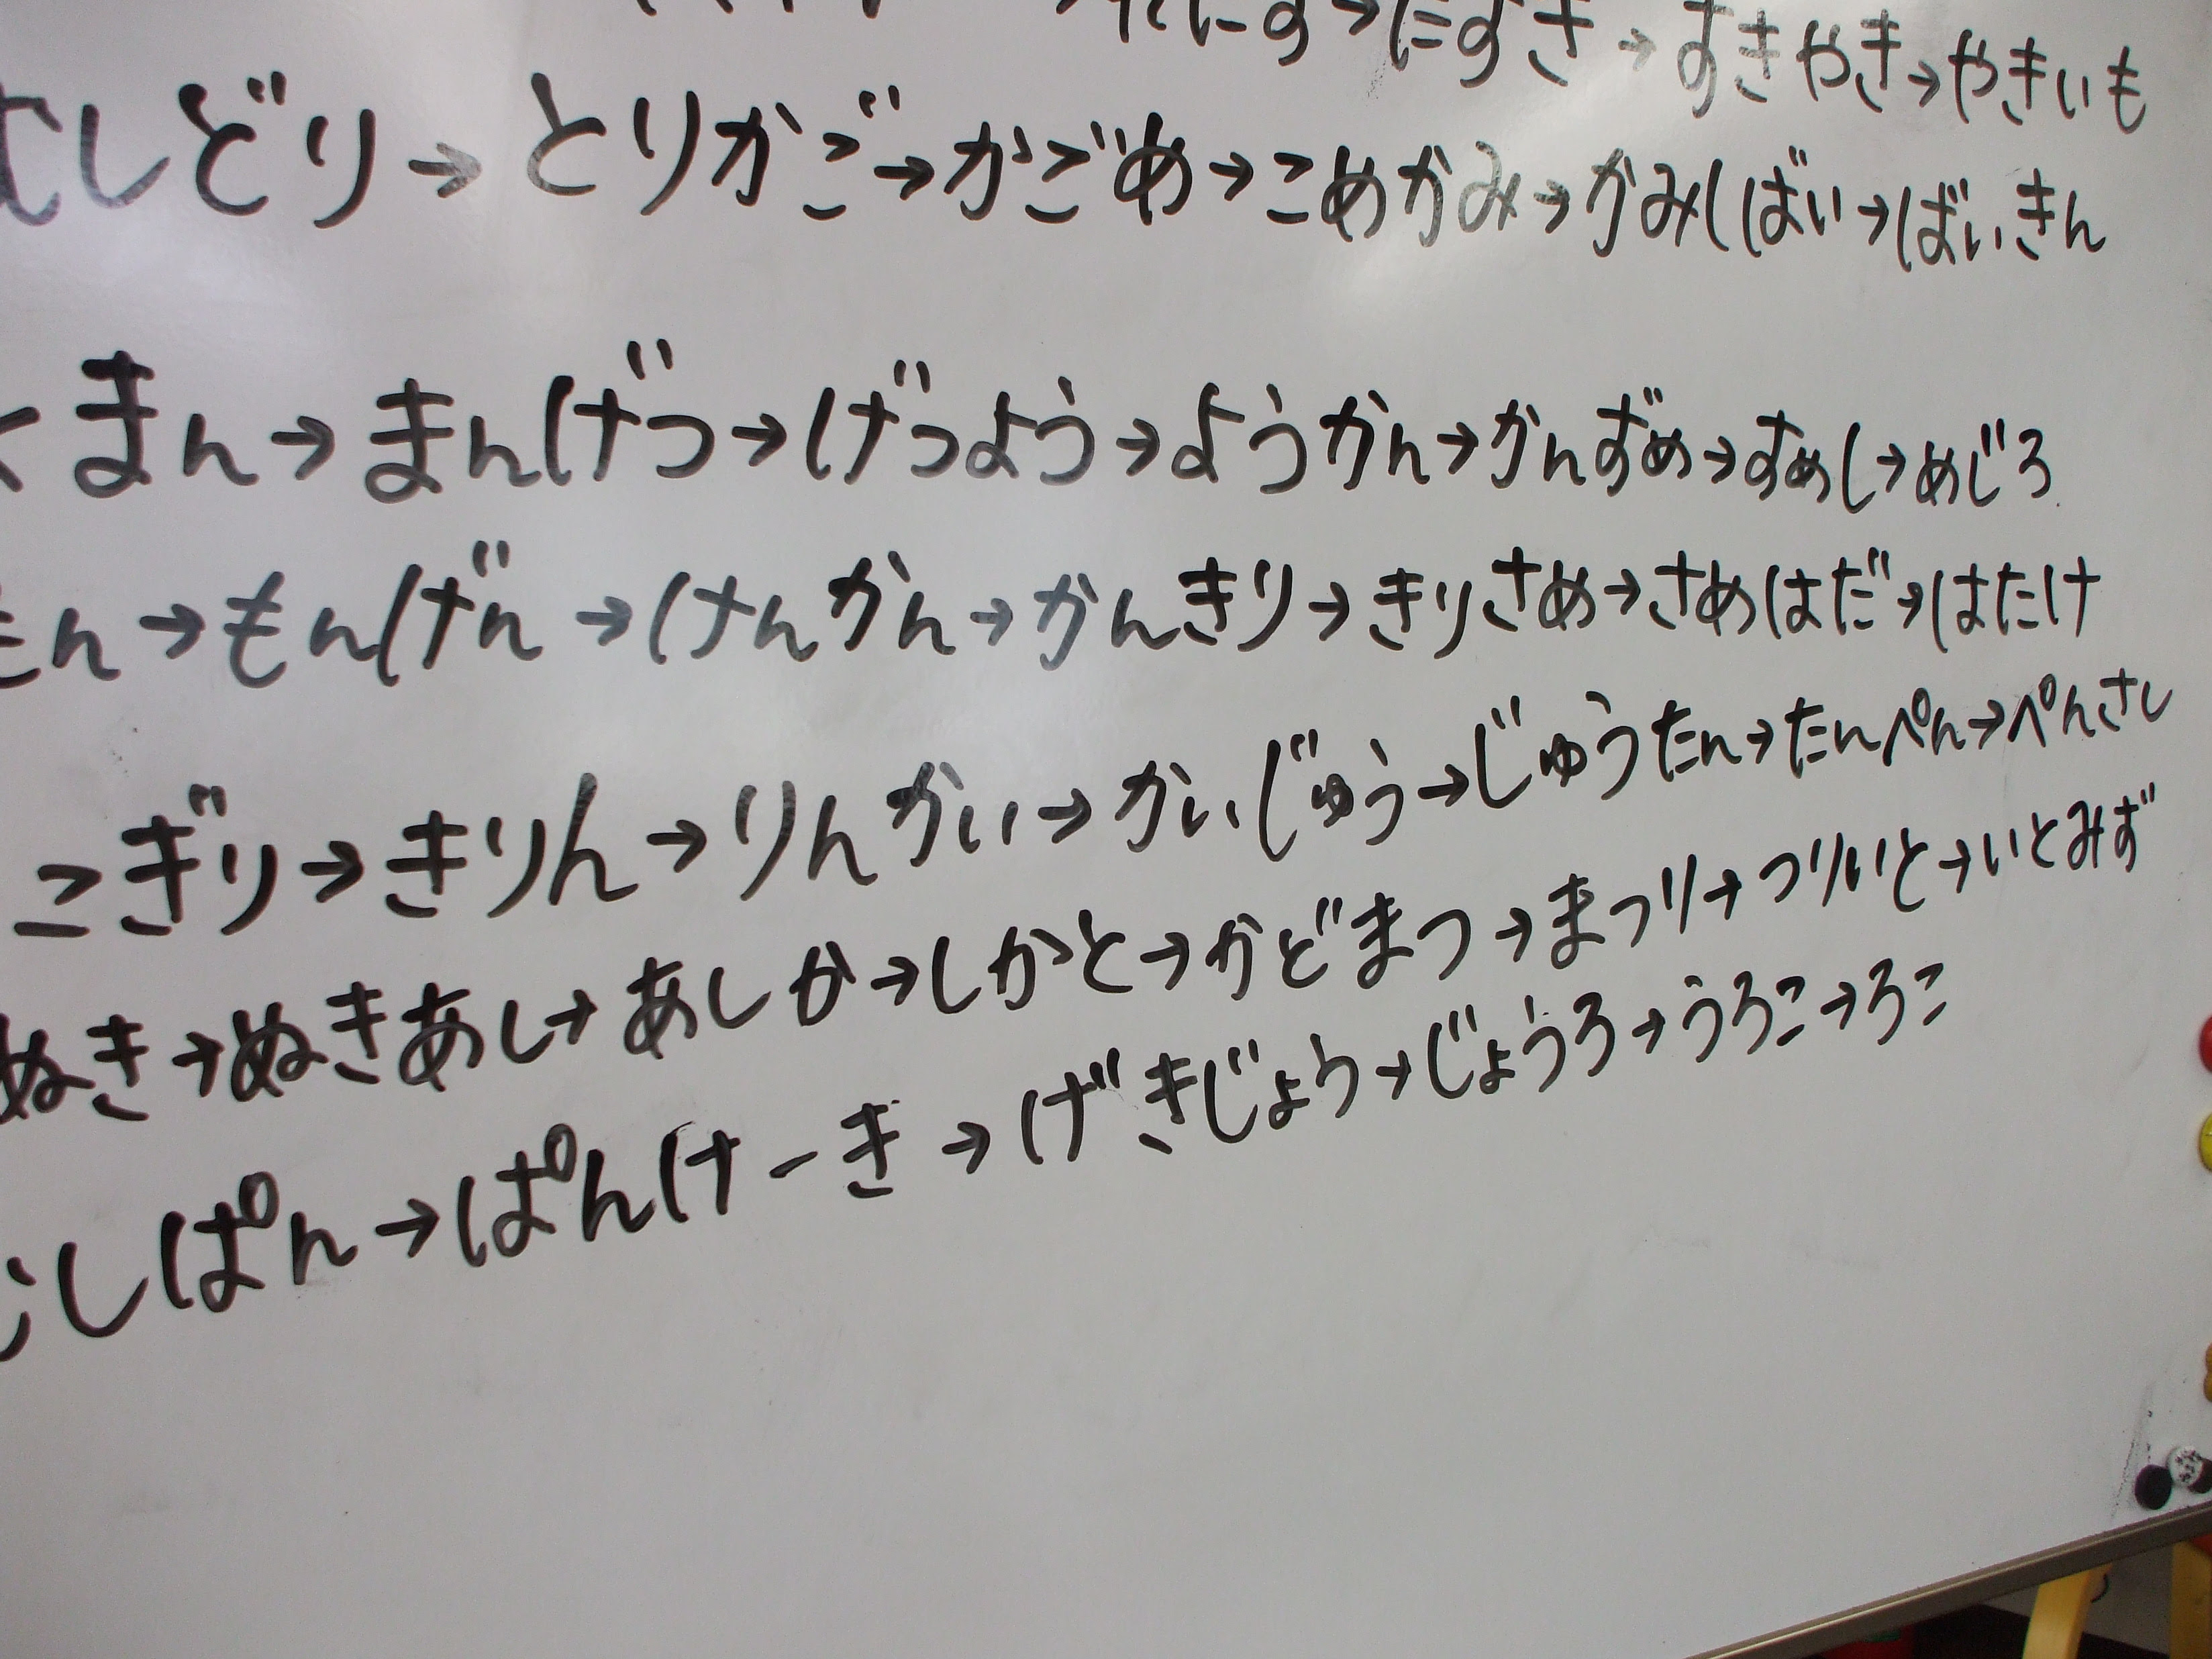 にすき→すきやき→やきいも
むしどり→とりかご→かごめ→こめかみ→かみしばい→ばいきん
くまん→まんげつ→げつよう→ようかん→かんずめ→すめし→めじろ
もん→もんげん→けんかん→かんきり→きりさめ→さめはだ→はたけ
こぎり→きりん→りんかい→かいじゅう→じゅうたん→たんぺん→ぺんさし
ぬき→ぬきあし→あしか→しかと→かどまつ→まつり→つりいと→いとみず
しぱん→ぱんけーき→げきじょう→じょうろ→うろこ→ろこ